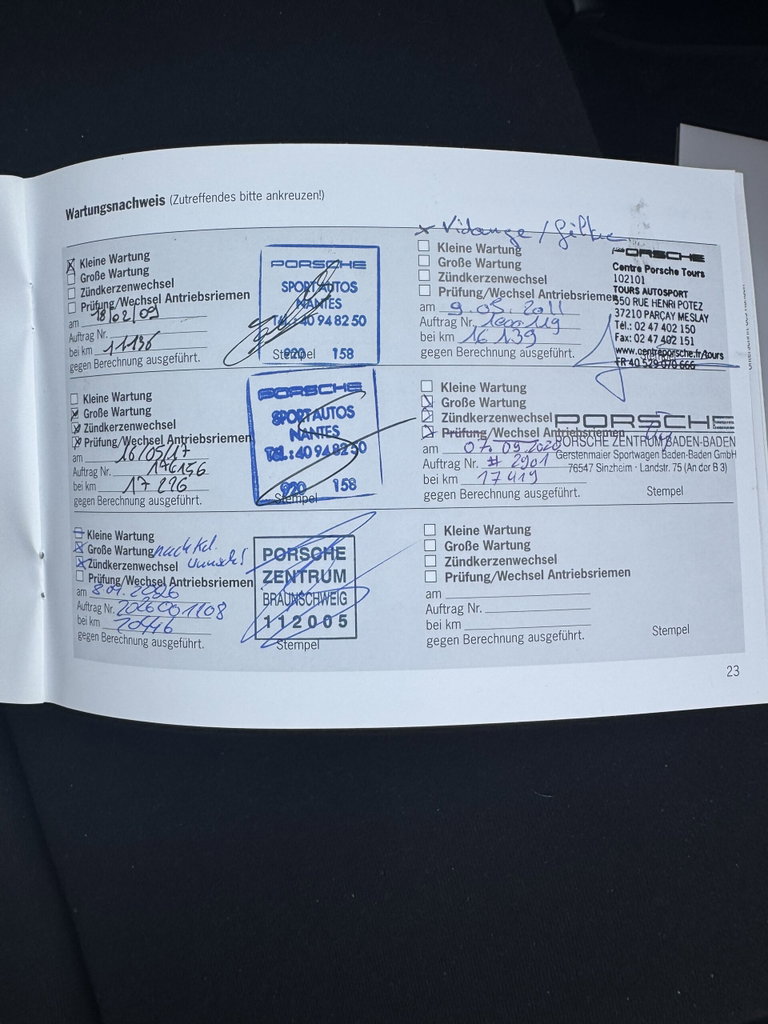 Wartungsnachweis (Zutreffendes bitte ankreuzen!)
Kleine Wartung
Große Wartung
Zündkerzenwechsel
Prüfung/Wechsel Antriebsriemen
am 18/02/09
Auftrag Nr.
bei km 11136
gegen Berechnung ausgeführt.
PORSCHE
SPORT AUTOS
NANTES
Tél.: 40 94 82 50
920 158
Stempel
x Vidange /
Kleine Wartung
Große Wartung
Zündkerzenwechsel
Prüfung/Wechsel Antriebsriemen
am 9.05.2011
Auftrag Nr.
bei km 16139
gegen Berechnung ausgeführt.
PORSCHE
Centre Porsche Tours
102101
TOURS AUTOSPORT
550 RUE HENRI POTEZ
37210 PARÇAY MESLAY
Tél.: 02 47 402 150
Fax: 02 47 402 151
www.centreporsche.fr/tours
FR 40 529 070 666
Kleine Wartung
Große Wartung
Zündkerzenwechsel
Prüfung/Wechsel Antriebsriemen
am 16/05/17
Auftrag Nr. 176156
bei km 17226
gegen Berechnung ausgeführt.
PORSCHE
SPORT AUTOS
NANTES
Tél.: 40 94 82 50
920 158
Stempel
Kleine Wartung
Große Wartung
Zündkerzenwechsel
Prüfung/Wechsel Antriebsriemen
am 07.09.2020
Auftrag Nr. # 2901
bei km 17419
gegen Berechnung ausgeführt.
PORSCHE
PORSCHE ZENTRUM BADEN-BADEN
Gerstenmaier Sportwagen Baden-Baden GmbH
76547 Sinzheim · Landstr. 75 (An der B 3)
Stempel
Kleine Wartung
Große Wartung nach Kd.
Zündkerzenwechsel Wunsch!
Prüfung/Wechsel Antriebsriemen
am 8.01.2026
Auftrag Nr. 2026001108
bei km 20446
gegen Berechnung ausgeführt.
PORSCHE
ZENTRUM
BRAUNSCHWEIG
112005
Stempel
Kleine Wartung
Große Wartung
Zündkerzenwechsel
Prüfung/Wechsel Antriebsriemen
am
Auftrag Nr.
bei km
gegen Berechnung ausgeführt.
Stempel
23